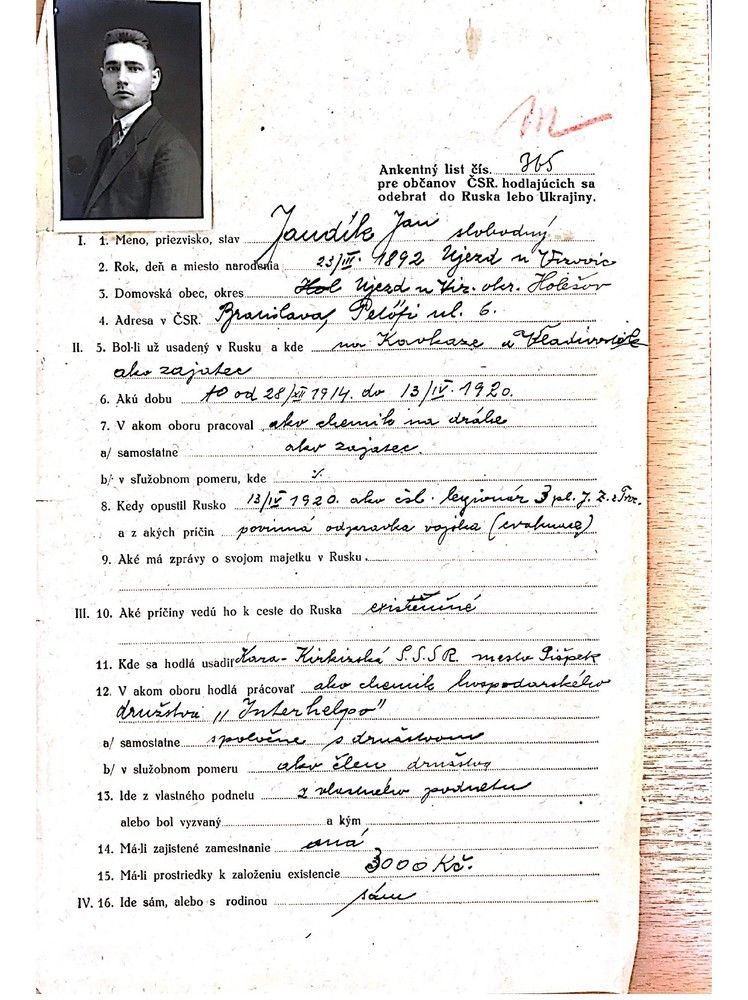 Ankentný list čís. 365
pre občanov ČSR. hodlajúcich sa
odebrat do Ruska lebo Ukrajiny.
I. 1. Meno, priezvisko, stav Jandík Jan slobodný
2. Rok, deň a miesto narodenia 23/III. 1892 Ujezd u Vizovic
3. Domovská obec, okres Ujezd u Viz. okr. Holešov
4. Adresa v ČSR. Bratislava, Petőfi ul. 6.
II. 5. Bol-li už usadený v Rusku a kde na Kavkaze a Vladivostok
ako zajatec
6. Akú dobu od 28/XII 1914. do 13/IV. 1920.
7. V akom oboru pracoval ako chemik na dráhe
a/ samostatne ako zajatec.
b/ v služobnom pomeru, kde
8. Kedy opustil Rusko 13/IV 1920. ako čsl. legionár 3 pl. J. Ž. z Troc.
a z akých príčin povinná odpravka vojska (evakuace)
9. Aké má zprávy o svojom majetku v Rusku
III. 10. Aké príčiny vedú ho k ceste do Ruska existenčné
11. Kde sa hodlá usadiť Kara-Kirkizská S.S.S.R. mesto Pišpek
12. V akom oboru hodlá prácovať ako chemik hospodarského
družstva „Interhelpo"
a/ samostatne spoločne s družstvom
b/ v služobnom pomeru ako člen družstva
13. Ide z vlastného podnetu z vlastného podnetu
alebo bol vyzvaný a kým
14. Má-li zajistené zamestnanie
15. Má-li prostriedky k založeniu existencie 3000 Kč.
IV. 16. Ide sám, alebo s rodinou sám